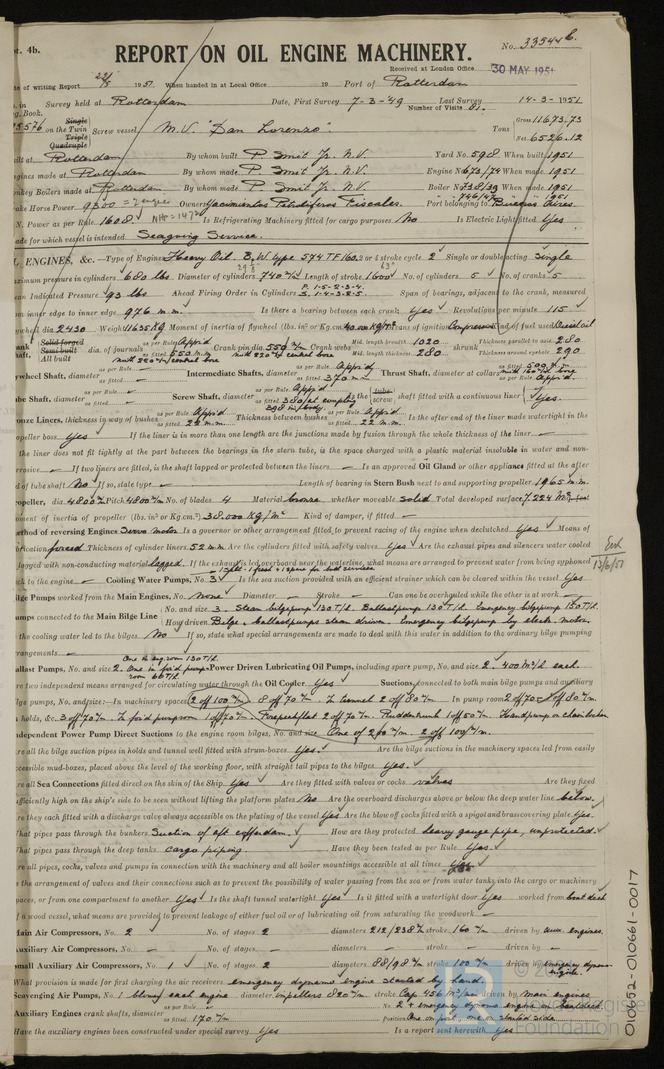 pt. 4b.
REPORT ON OIL ENGINE MACHINERY.
No. 33544 C.
Received at London Office 30 MAY 1951
of writing Report 22/5 1951 When handed in at Local Office 19 Port of Rotterdam
Survey held at Rotterdam Date, First Survey 7-3-49 Last Survey 14-3-1951
Book. Number of Visits 81.
on the Single Twin Triple Quadruple Screw vessel M.V. "San Lorenzo" Tons Gross 11673.73 Net 6526.12
built at Rotterdam By whom built P. Smit Jr. N.V. Yard No. 598 When built 1951
Engines made at Rotterdam By whom made P. Smit Jr. N.V. Engine No. 673/74 When made 1951
Donkey Boilers made at Rotterdam By whom made P. Smit Jr. N.V. Boiler No. 738/39 When made 1951
746/47 1951
Brake Horse Power 9500 = 2 engines Owners Yacimientos Petroliferos Fiscales. Port belonging to Buenos Aires.
N. Power as per Rule 1608. NHP = 147 Is Refrigerating Machinery fitted for cargo purposes No Is Electric Light fitted Yes
Trade for which vessel is intended Seagoing Service.
OIL ENGINES, &c.—Type of Engines Heavy Oil B, W type 574 TF 160. 2 or 4 stroke cycle 2 Single or double acting Single
Maximum pressure in cylinders 680 lbs Diameter of cylinders 740 m/m Length of stroke 1600 No. of cylinders 5 No. of cranks 5
Mean Indicated Pressure 93 lbs Ahead Firing Order in Cylinders P. 1-5-2-3-4. S. 1-4-3-2-5. Span of bearings, adjacent to the crank, measured
from inner edge to inner edge 976 m.m. Is there a bearing between each crank Yes Revolutions per minute 115
Flywheel dia. 2430 Weight 11635 KG Moment of inertia of flywheel (lbs. in² or Kg.cm²) Means of ignition Compression Kind of fuel used Diesel oil
Crank Shaft, Solid forged Semi built All built dia. of journals as per Rule App'd as fitted 550 m.m. Crank pin dia. 550 m/m Crank webs Mid. length breadth 1020 Mid. length thickness 280 shrunk Thickness parallel to axis 280 Thickness around eyelole 290
with 220 m/m central bore with 220 m/m central bore
Flywheel Shaft, diameter as per Rule — as fitted — Intermediate Shafts, diameter as per Rule App'd as fitted 370 m.m. Thrust Shaft, diameter at collars as per Rule App'd
Tube Shaft, diameter as per Rule — as fitted — Screw Shaft, diameter as per Rule App'd as fitted Is the tube screw shaft fitted with a continuous liner Yes.
Bronze Liners, thickness in way of bushes as per Rule App'd as fitted 22 m.m. Thickness between bushes as per Rule App'd as fitted 22 m.m. Is the after end of the liner made watertight in the
propeller boss Yes If the liner is in more than one length are the junctions made by fusion through the whole thickness of the liner —
the liner does not fit tightly at the part between the bearings in the stern tube, is the space charged with a plastic material insoluble in water and non-
corrosive — If two liners are fitted, is the shaft lapped or protected between the liners — Is an approved Oil Gland or other appliance fitted at the after
end of tube shaft No If so, state type — Length of bearing in Stern Bush next to and supporting propeller 1965 m.m.
Propeller, dia. 4800 Pitch 4800 m/m No. of blades 4 Material bronze whether moveable solid Total developed surface 7.224 M²
moment of inertia of propeller (lbs. in² or Kg.cm.²) 38.000 Kg/m² Kind of damper, if fitted —
Method of reversing Engines Servo motor Is a governor or other arrangement fitted to prevent racing of the engine when declutched Yes Means of
lubrication forced Thickness of cylinder liners 52 mm Are the cylinders fitted with safety valves Yes Are the exhaust pipes and silencers water cooled
or lagged with non-conducting material lagged If the exhaust is led overboard near the waterline, what means are arranged to prevent water from being syphoned
back to the engine — Cooling Water Pumps, No. 3 Is the sea suction provided with an efficient strainer which can be cleared within the vessel Yes.
Bilge Pumps worked from the Main Engines, No. None Diameter — Stroke — Can one be overhauled while the other is at work —
Pumps connected to the Main Bilge Line No. and size 3. Steam bilgepump 130 T/h. Ballastpumps 130 T/h. Emergency bilgepump 130 T/h.
How driven Bilge & ballastpumps steam driven. Emergency bilgepump by electr. motor.
Is the cooling water led to the bilges No If so, state what special arrangements are made to deal with this water in addition to the ordinary bilge pumping
arrangements —
One in eng. room 130 T/h.
Ballast Pumps, No. and size 2. One in for'd pumproom 66 T/h Power Driven Lubricating Oil Pumps, including spare pump, No. and size 2. 400 m³/h each.
Are two independent means arranged for circulating water through the Oil Cooler Yes Suctions, connected to both main bilge pumps and auxiliary
bilge pumps, No. and size:—In machinery spaces 2 off 100 m/m 8 off 70 m/m. In tunnel 2 off 80 m/m. In pump room
In holds, &c. 3 off 70 m/m In for'd pumproom 1 off 70 m/m Forepeakflat 2 off 70 m/m. Ruddertrunk 1 off 50 m/m.
Independent Power Pump Direct Suctions to the engine room bilges, No. and size One of 200 m/m. 2 off 100 m/m.
Are all the bilge suction pipes in holds and tunnel well fitted with strum-boxes. Yes. Are the bilge suctions in the machinery spaces led from easily
accessible mud-boxes, placed above the level of the working floor, with straight tail pipes to the bilges Yes.
Are all Sea Connections fitted direct on the skin of the Ship Yes Are they fitted with valves or cocks valves Are they fixed
sufficiently high on the ship's side to be seen without lifting the platform plates No Are the overboard discharges above or below the deep water line below.
Are they each fitted with a discharge valve always accessible on the plating of the vessel Yes Are the blow off cocks fitted with a spigot and brass covering plate Yes.
What pipes pass through the bunkers Suction of aft cofferdam. How are they protected heavy gauge pipe, unprotected.
What pipes pass through the deep tanks cargo piping. Have they been tested as per Rule Yes.
Are all pipes, cocks, valves and pumps in connection with the machinery and all boiler mountings accessible at all times Yes
Is the arrangement of valves and their connections such as to prevent the possibility of water passing from the sea or from water tanks into the cargo or machinery
spaces, or from one compartment to another Yes Is the shaft tunnel watertight Yes Is it fitted with a watertight door Yes worked from boat deck
If a wood vessel, what means are provided to prevent leakage of either fuel oil or of lubricating oil from saturating the woodwork —
Main Air Compressors, No. 2 No. of stages 2 diameters 212/238 stroke 160 m/m driven by aux. engines.
Auxiliary Air Compressors, No. — No. of stages — diameters — stroke — driven by —
Small Auxiliary Air Compressors, No. 1 No. of stages 2 diameters 88/98 m/m stroke 100 m/m driven by emergency dynamo engine.
What provision is made for first charging the air receivers emergency dynamo engine started by hand.
Scavenging Air Pumps, No. 1 blower each engine diameter impellers 820 m/m stroke Cap. 456 m³/min driven by main engines
Auxiliary Engines crank shafts, diameter as per Rule as fitted 170 m/m No. 2 & emergency dynamo engine on boatdeck
Position One on port, one on starboard side
Have the auxiliary engines been constructed under special survey Yes Is a report sent herewith Yes
010652-010661-0017
Lloyd's Register
Foundation